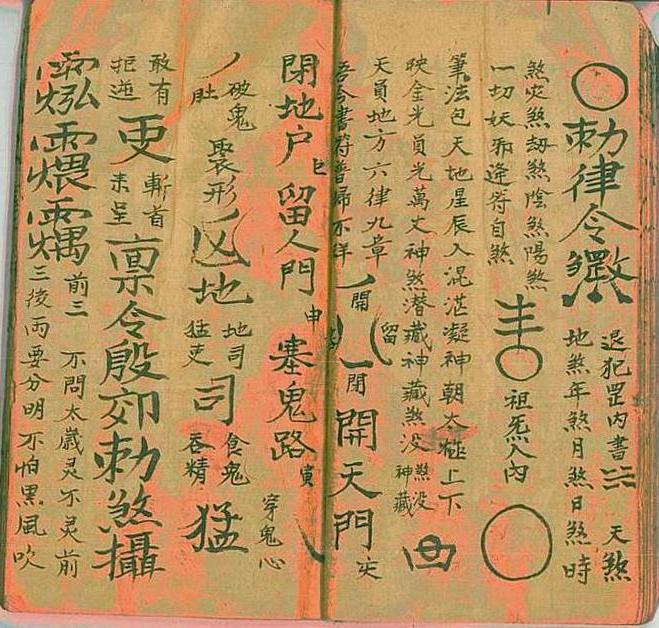 勅律令
退犯罡内書 天煞
地煞年煞月煞日煞時
煞灾煞劫煞陰煞陽煞
一切妖邪逢符自煞
祖炁入内
筆法包天地星辰入混沌凝神朝太極上下
映金光員光萬丈神煞潛藏神藏煞没煞没神藏
天員地方六律九章
吾今書符普歸不祥
開
留
閉
開天門
閉地户
留人門
申
塞鬼路
寅
穿鬼心
破鬼
肚
聚形
地
地司
猛吏
司
食鬼
吞精
猛
敢有
拒逆
更
斬首
来呈
禀令殷郊勅煞攝
前三
三後兩要分明不怕黒風吹
不問太歲灵不灵前